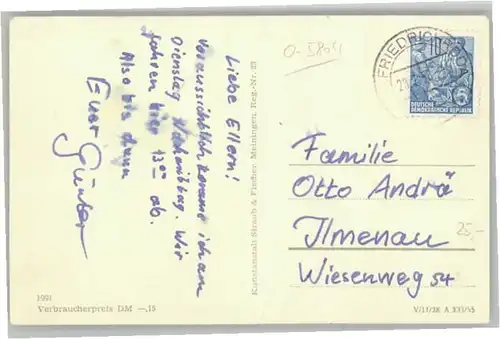 Liebe Eltern!
Voraussichtlich komme ich am
Dienstag Nachmittag. Wir
fahren hier 13⁰⁰ ab.
Also bis dann
Euer Günter
Kunstanstalt Straub & Fischer, Meiningen, Reg.-Nr. 23
O-5804
FRIEDRICHRODA
DEUTSCHE
DEMOKRATISCHE REPUBLIK
Familie
Otto Andrä
Ilmenau
25,-
Wiesenweg 54
1091
Verbraucherpreis DM —,15
V/11/28 A 333/55